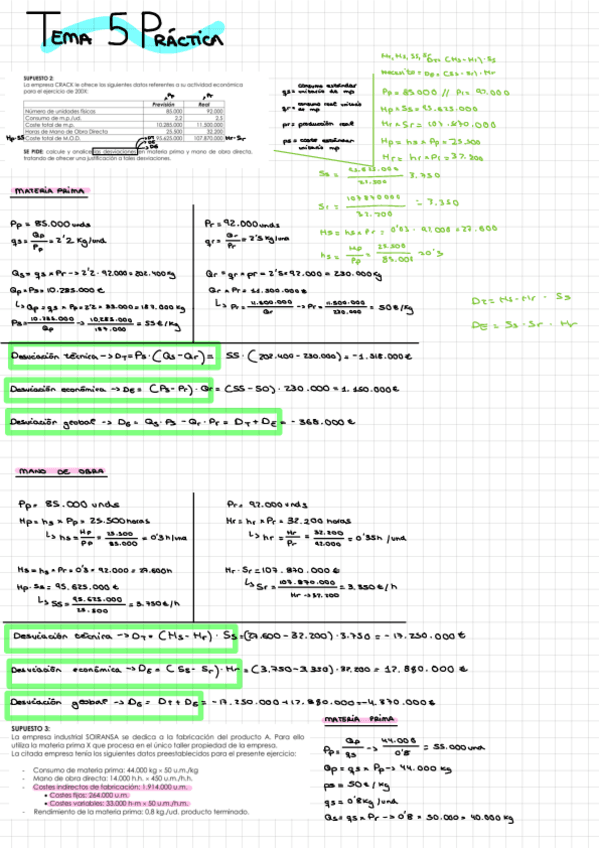 TEMA 5 PRÁCTICA
SUPUESTO 2:
La empresa CRACK le ofrece los siguientes datos referentes a su actividad económica
para el ejercicio de 200X.
Pp Pr
Previsión Real
Número de unidades físicas 85.000 92.000
Consumo de m.p./ud. 2,2 2,5
Coste total de m.p. 10.285.000 11.500.000
Horas de Mano de Obra Directa 25.500 32.200
Hp·Ss Coste total de M.O.D. 95.625.000 107.870.000 Hr·Sr
SE PIDE: calcule y analice las desviaciones en materia prima y mano de obra directa,
tratando de ofrecer una justificación a tales desviaciones.
DT
DE
DG
consumo estándar
qs= unitario de mp
consumo real unitario
qr= de mp
pr= producción real
ps= coste estándar
unitario mp
Pp = 85.000 // Pr = 92.000
Hp×Ss = 95.625.000
Hr×Sr = 107.870.000
Hp = hs × Pp = 25.500
Hr = hr × Pr = 32.200
Ss = 95.625.000 / 25.500 = 3.750
Sr = 107870000 / 32.200 = 3.350
hs = Hp / Pp = 25.500 / 85.000 = 0'3
DT = Hs - Hr · Ss
DE = Ss - Sr · Hr
MATERIA PRIMA
Pp = 85.000 unds
Pr = 92.000 unds
qs = Qp / Pp = 2'2 Kg/und
qr = Qr / Pr = 2'5 Kg/und
Qs = qs × Pr → 2'2 · 92.000 = 202.400 Kg
Qr = qr × pr = 2'5 × 92.000 = 230.000 Kg
Qp × Ps = 10.285.000 €
Qr × Pr = 11.500.000 €
↳ Qp = qs × Pp = 2'2 × 85.000 = 187.000 Kg
↳ Pr = 11.500.000 / Qr → Pr = 11.500.000 / 230.000 = 50 €/Kg
Ps = 10.285.000 / Qp → 10.285.000 / 187.000 = 55 €/Kg
Desviación técnica → DT = Ps · (Qs - Qr) = 55 · (202.400 - 230.000) = -1.518.000 €
Desviación económica → DE = (Ps - Pr) · Qr = (55 - 50) · 230.000 = 1.150.000 €
Desviación global → DG = Qs · Ps - Qr · Pr = DT + DE = -368.000 €
MANO DE OBRA
Pp = 85.000 unds
Pr = 92.000 unds
Hp = hs × Pp = 25.500 horas
Hr = hr × Pr = 32.200 horas
↳ hs = Hp / Pp = 25.500 / 85.000 = 0'3 h/und
↳ hr = Hr / Pr = 32.200 / 92.000 = 0'35h /und
Hs = hs × Pr = 0'3 × 92.000 = 27.600h
Hr · Sr = 107.870.000 €
Hp · Ss = 95.625.000 €
↳ Sr = 107.870.000 / Hr → 32.200 = 3.350 €/h
↳ Ss = 95.625.000 / 25.500 = 3.750 €/h
Desviación técnica → DT = (Hs - Hr) · Ss = (27.600 - 32.200) · 3.750 = -17.250.000 €
Desviación económica → DE = (Ss - Sr) · Hr = (3.750 - 3.350) · 32.200 = 12.880.000 €
Desviación global → DG = DT + DE = -17.250.000 + 12.880.000 = -4.370.000 €
SUPUESTO 3:
La empresa industrial SOIRANSA se dedica a la fabricación del producto A. Para ello
utiliza la materia prima X que procesa en el único taller propiedad de la empresa.
La citada empresa tenía los siguientes datos preestablecidos para el presente ejercicio:
- Consumo de materia prima: 44.000 kg × 50 u.m./kg
- Mano de obra directa: 14.000 h.h. × 450 u.m./h.h.
- Costes indirectos de fabricación: 1.914.000 u.m.
• Costes fijos: 264.000 u.m.
• Costes variables: 33.000 h-m × 50 u.m./h.m.
- Rendimiento de la materia prima: 0,8 kg./ud. producto terminado.
MATERIA PRIMA
Pp = Qp / qs → 44.000 / 0'8 = 55.000 und
Qp = qs × Pp → 44.000 Kg
ps = 50 €/Kg
qs = 0'8 Kg/und
Qs = qs × Pr → 0'8 × 50.000 = 40.000 Kg